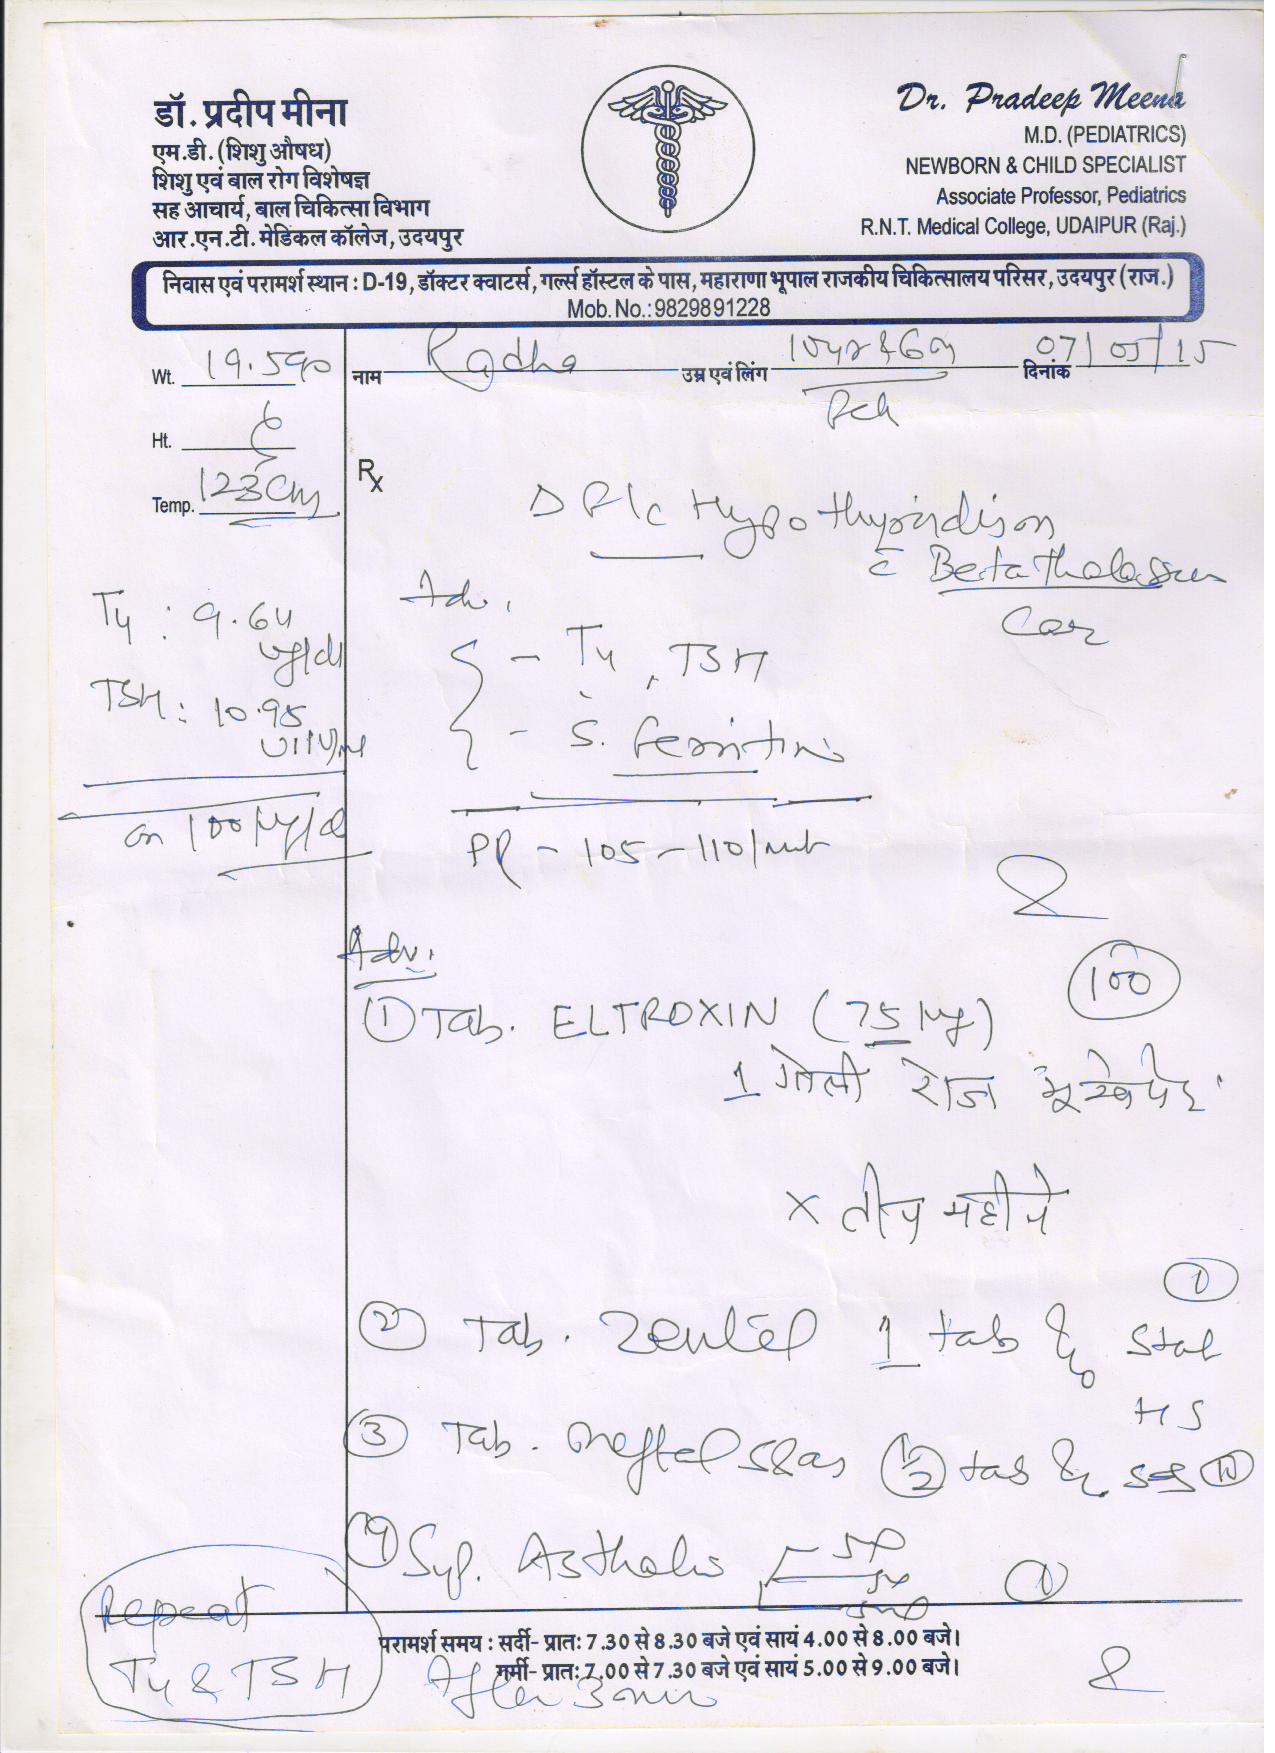 डॉ. प्रदीप मीना
एम.डी. (शिशु औषध)
शिशु एवं बाल रोग विशेषज्ञ
सह आचार्य, बाल चिकित्सा विभाग
आर.एन.टी. मेडिकल कॉलेज, उदयपुर
Dr. Pradeep Meena
M.D. (PEDIATRICS)
NEWBORN & CHILD SPECIALIST
Associate Professor, Pediatrics
R.N.T. Medical College, UDAIPUR (Raj.)
निवास एवं परामर्श स्थान : D-19, डॉक्टर क्वाटर्स, गर्ल्स हॉस्टल के पास, महाराणा भूपाल राजकीय चिकित्सालय परिसर, उदयपुर (राज.)
Mob. No.: 9829891228
Wt. 19.590 नाम Radha उम्र एवं लिंग दिनांक 07/05/15
Fch
Ht.
Temp. 123 cm
Rx
Hypothyroidism
c̄ Beta Thalassem
Adv.
T4 : 9.64
µg/dl
TSH : 10.95
- T4, TSH
- S. Ferritin
on 100 µg/d
PR - 105-110/mt
Adv.
100
① Tab. ELTROXIN (75 µg)
1 गोली रोज भूखे पेट
x तीन महीने
①
② Tab. Zentel 1 tab stat
HS
③ Tab. Meftal Spas ½ tab
④ Syp. Asthalin ①
Repeat
T4 & TSH After 3
परामर्श समय : सर्दी- प्रातः 7.30 से 8.30 बजे एवं सायं 4.00 से 8.00 बजे।
गर्मी- प्रातः 7.00 से 7.30 बजे एवं सायं 5.00 से 9.00 बजे।